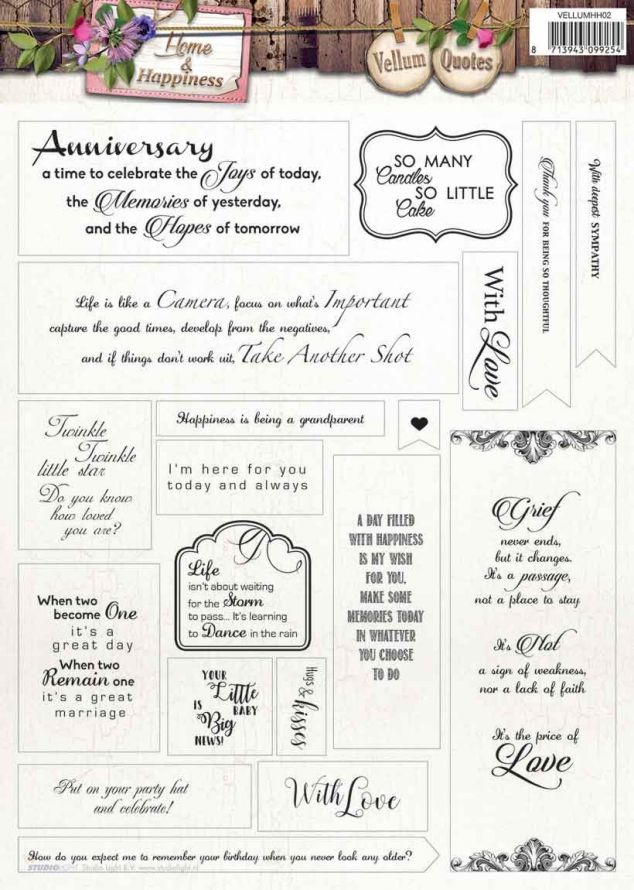 Home
& Happiness
Vellum Quotes
VELLUMHH02
8 713943 099254
Anniversary
a time to celebrate the Joys of today,
the Memories of yesterday,
and the Hopes of tomorrow
SO MANY
Candles
SO LITTLE
Cake
Thank you FOR BEING SO THOUGHTFUL
With deepest SYMPATHY
Life is like a Camera, focus on what's Important
capture the good times, develop from the negatives,
and if things don't work uit, Take Another Shot
With Love
Twinkle
Twinkle
little star
Do you know
how loved
you are?
Happiness is being a grandparent
I'm here for you
today and always
A DAY FILLED
WITH HAPPINESS
IS MY WISH
FOR YOU.
MAKE SOME
MEMORIES TODAY
IN WHATEVER
YOU CHOOSE
TO DO
Grief
never ends,
but it changes.
It's a passage,
not a place to stay
It's Not
a sign of weakness,
nor a lack of faith
It's the price of
Love
When two
become One
it's a
great day
When two
Remain one
it's a great
marriage
Life
isn't about waiting
for the Storm
to pass... It's learning
to Dance in the rain
YOUR
Little
IS BABY
Big
NEWS!
Hugs & kisses
Put on your party hat
and celebrate!
With Love
How do you expect me to remember your birthday when you never look any older?
STUDIOLIGHT Studio Light B.V. www.studiolight.nl